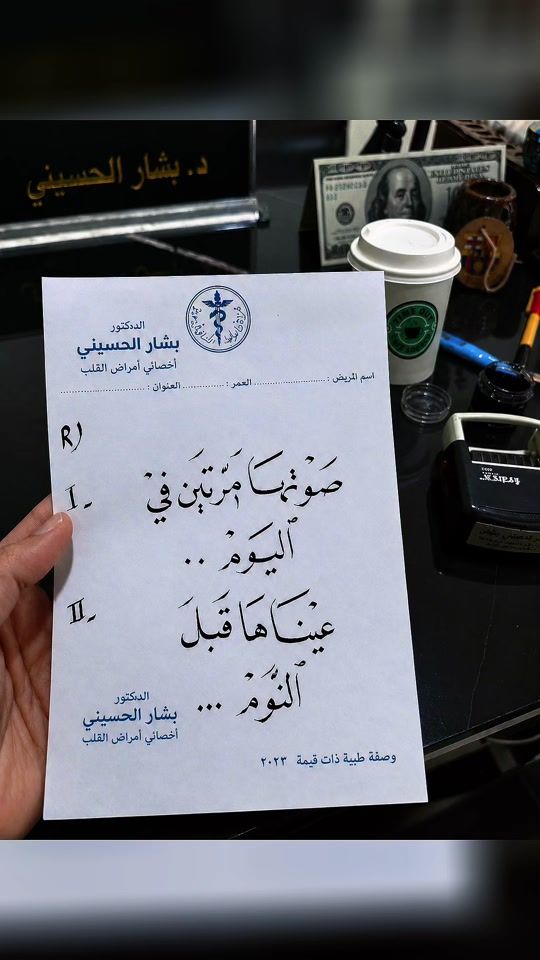 د. بشار الحسيني
الدكتور
بشار الحسيني
أخصائي أمراض القلب
اسم المريض : ........................ العمر : ............... العنوان : ..............................
R)
I- صَوْتهَا مَرّتَين فيْ
اليَومْ ..
II- عيْنَاهَا قَبلَ
النَّوُمْ ...
الدكتور
بشار الحسيني
أخصائي أمراض القلب
وصفة طبية ذات قيمة ٢٠٢٣